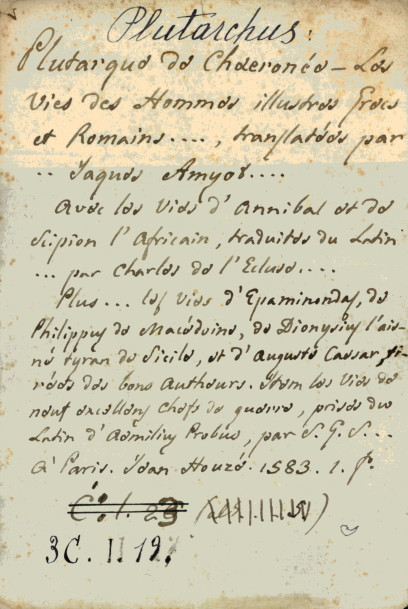 Plutarchus.
Plutarque de Chaeronée – Les
Vies des Hommes illustres Grecs
et Romains...., translatées par
.. Jaques Amyot....
Avec les Vies d'Annibal et de
Scipion l'Africain, traduites du Latin
... par Charles de l'Ecluse....
Plus... les vies d'Epaminondas, de
Philippus de Macédoine, de Dionysius l'ais-
né tyran de Sicile, et d'Auguste Caesar, ti-
rées des bons Autheurs. Item les Vies de
neuf excellens Chefs de guerre, prises du
Latin d'Aemilius Probus, par S. G. S...
A Paris. Jean Houzé. 1583. 1. f.
C. 1. 23
3C. II. 19.